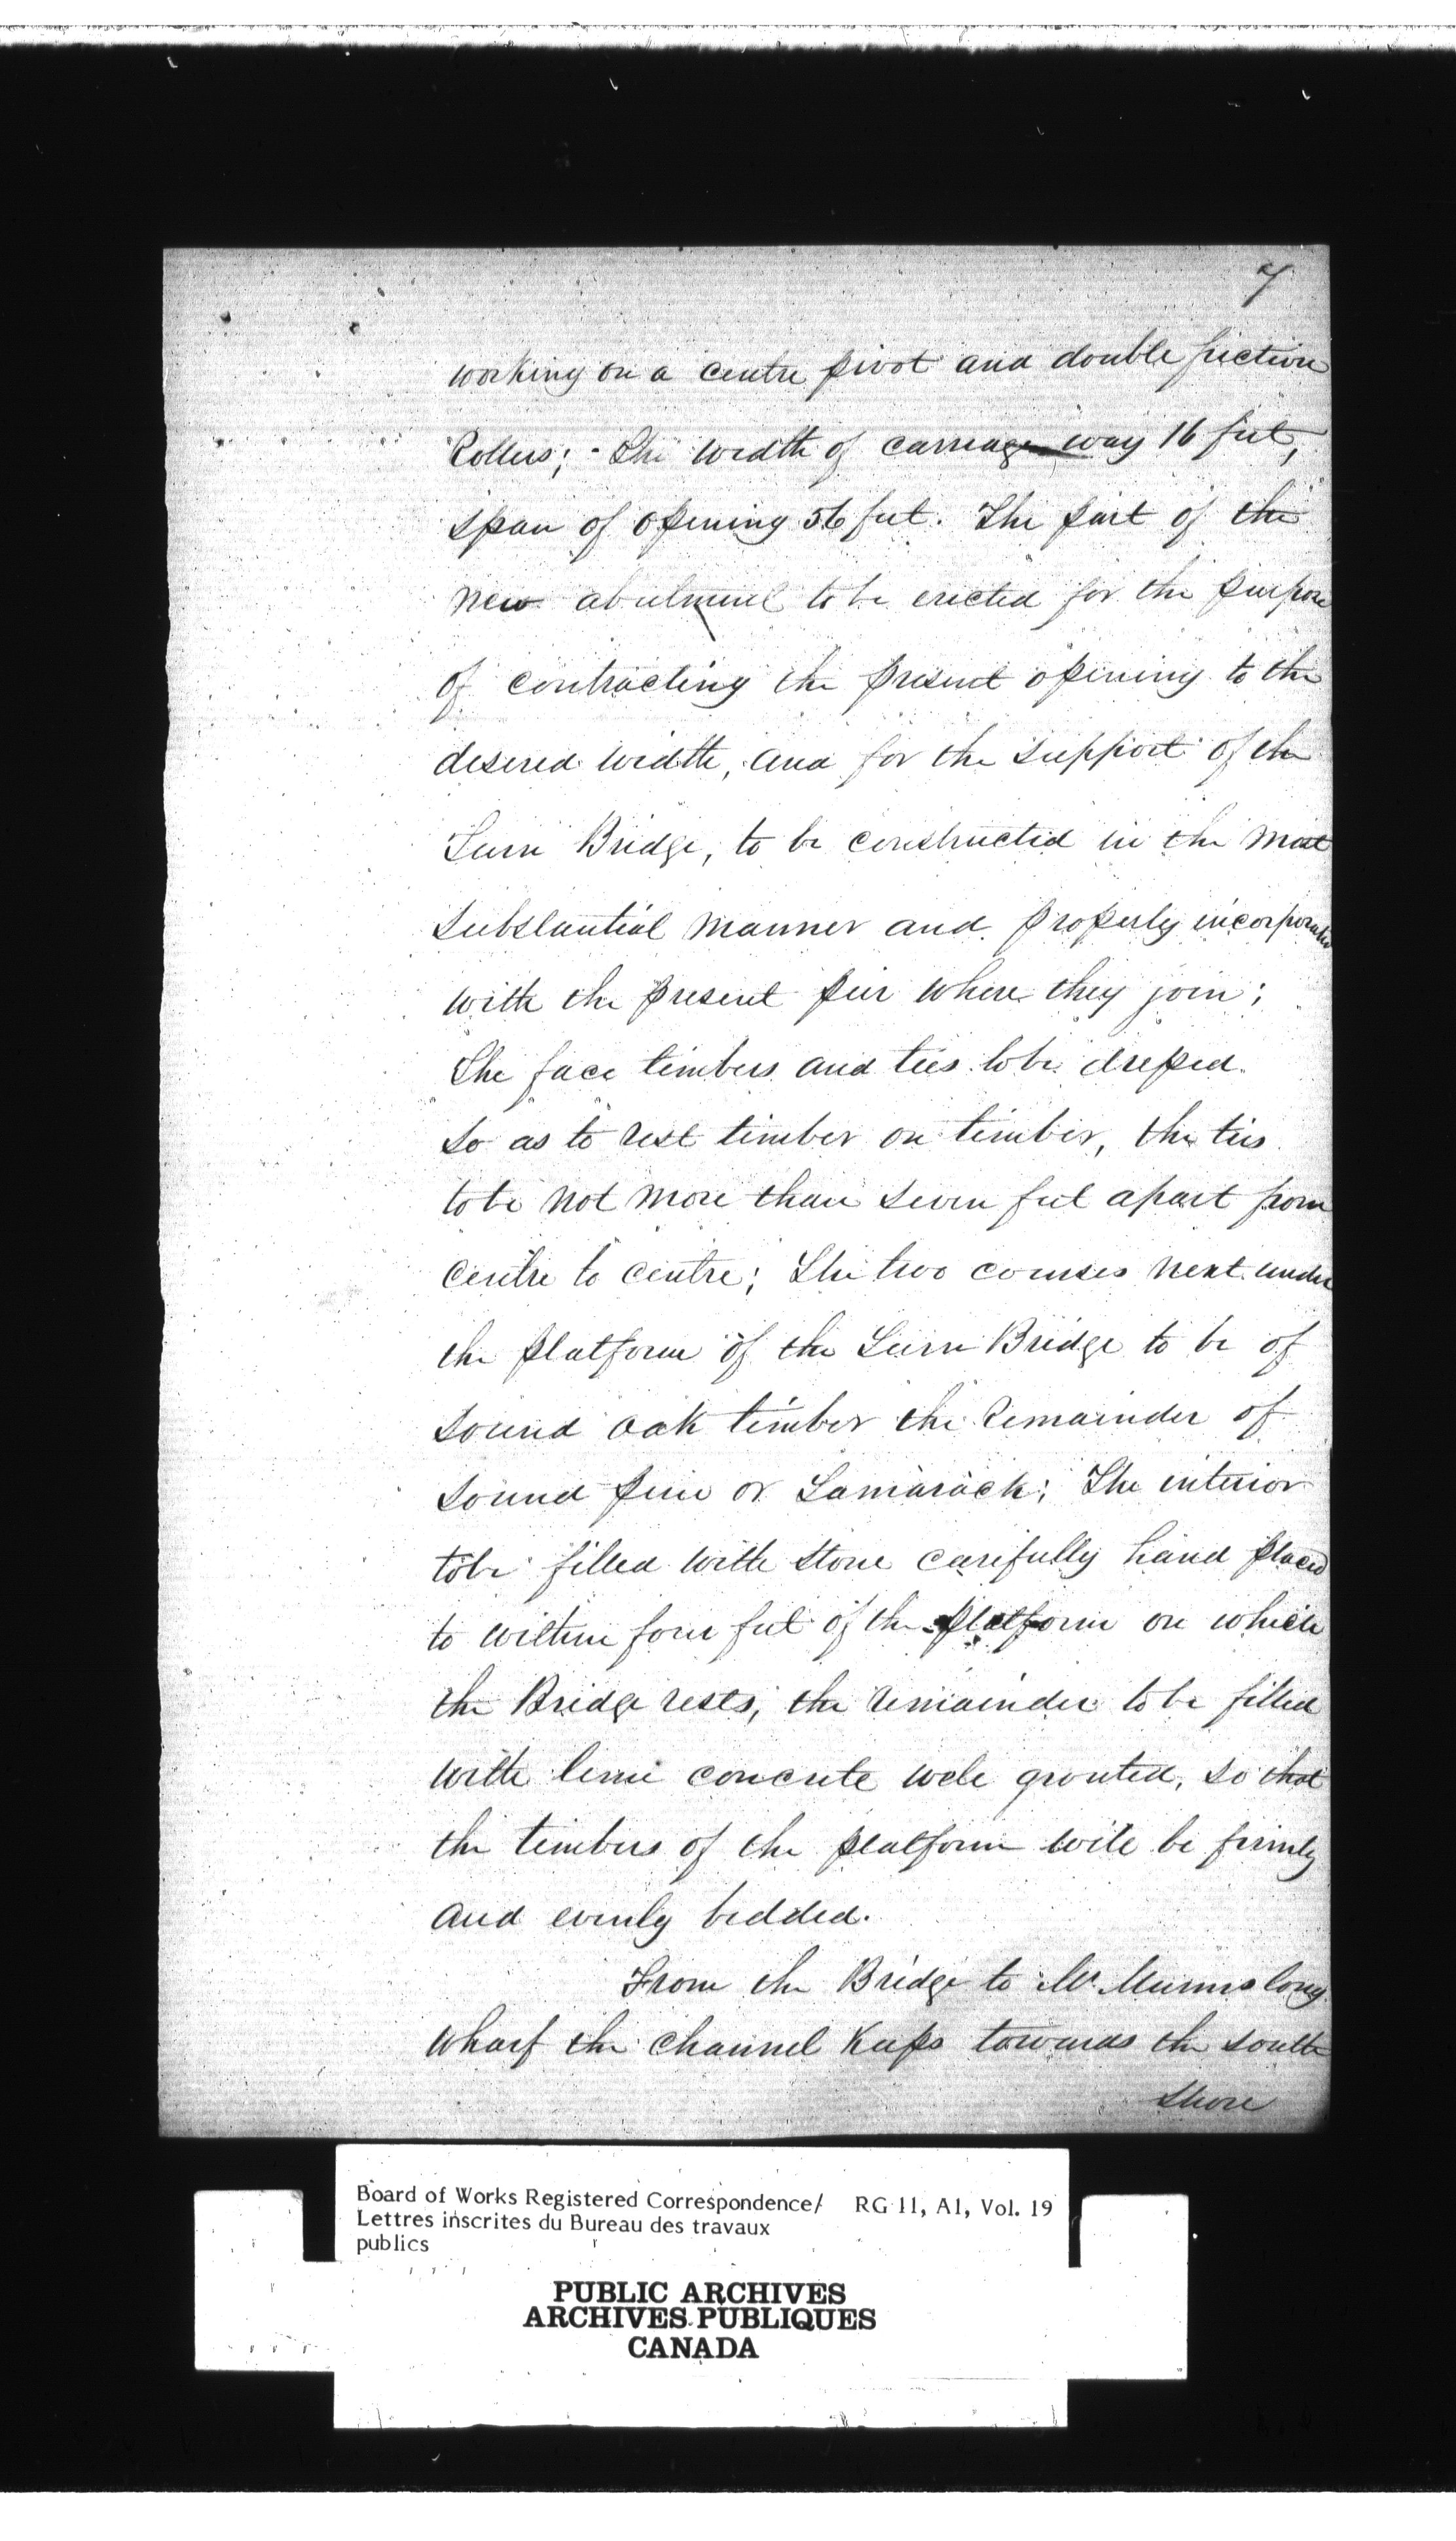 7
working on a centre pivot and double friction
Rollers; - The width of carriage way 16 feet,
span of opening 56 feet. The part of the
new abutment to be erected for the purpose
of contracting the present opening to the
desired width, and for the support of the
Turn Bridge, to be constructed in the most
substantial manner and properly incorporated
with the present pier where they join;
The face timbers and ties to be
so as to rest timber on timber, the ties
to be not more than seven feet apart from
centre to centre; The two courses next under
the platform of the Turn Bridge to be of
sound oak timber the remainder of
sound pine or Tamarack; The interior
to be filled with stone carefully hand placed
to within four feet of the platform on which
the Bridge rests, the remainder to be filled
with lime concrete well grouted, so that
the timbers of the platform will be firmly
and evenly bedded.
From the Bridge to long
wharf the channel keeps towards the south
shore
Board of Works Registered Correspondence/ RG 11, A1, Vol. 19
Lettres inscrites du Bureau des travaux
publics
PUBLIC ARCHIVES
ARCHIVES PUBLIQUES
CANADA